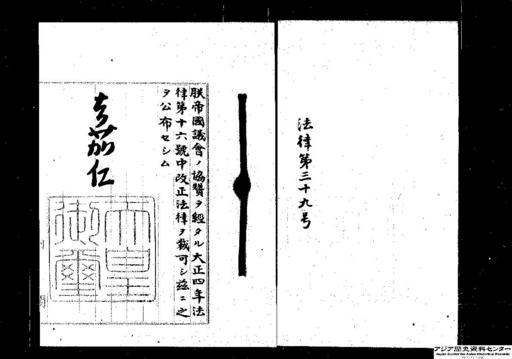 法律第三十九号
朕帝國議會ノ協贊ヲ經タル大正四年法
律第十六號中改正法律ヲ裁可シ茲ニ之
ヲ公布セシム
嘉仁
天皇
御璽
アジア歴史資料センター
Japan Center for Asian Historical Records